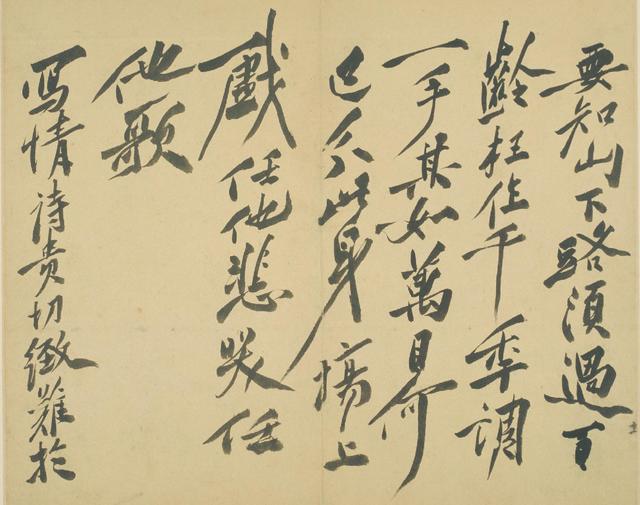 要知山下路須過百
齡枉住千年調
一手其如萬目何
已分此身場上
戲任他悲哭任
他歌
寫情詩貴切難於